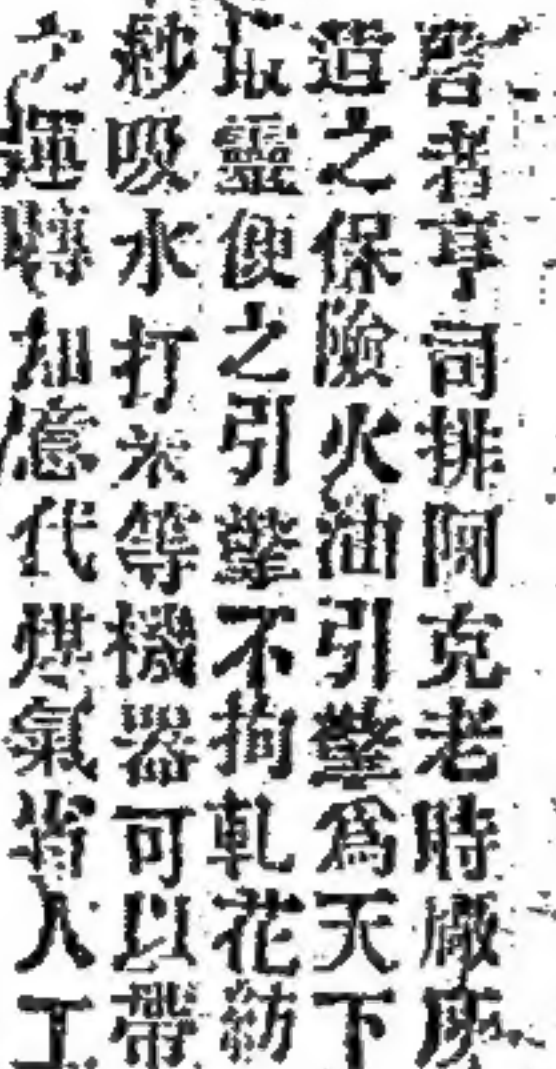 啓者亨司排阿克老時廠所
造之保險火油引擎為天下
最靈便之引擎不拘軋花紡
紗吸水打米等機器可以帶
之運轉如意代煤氣省人工